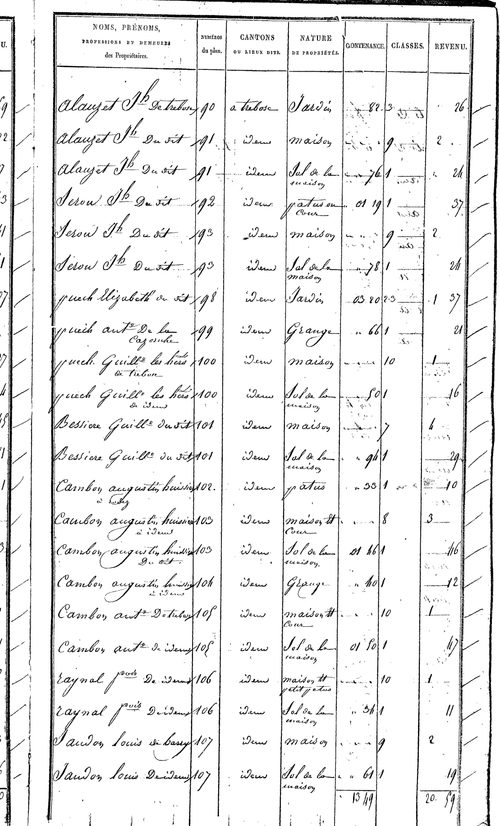 NOMS, PRÉNOMS, PROFESSIONS ET DEMEURES des Propriétaires. NUMÉROS du plan. CANTONS OU LIEUX DITS. NATURE DE PROPRIÉTÉS. CONTENANCE. CLASSES. REVENU.
Alauzet Jh De trebosc 90 a trebosc Jardin 82 3 26
Alauzet Jh Du dit 91 idem maison 9 2
Alauzet Jh Du dit 91 idem Sol de la maison 76 1 24
Serou Jh Du dit 192 idem patus ou Cour 01 19 1 37
Serou Jh Du dit 193 idem maison 9 2
Serou Jh Du dit 93 idem Sol de la maison 78 1 24
puech Elizabeth du dit 98 idem Jardin 03 20 2.3 1 37
puech ant.e De la 99 idem Grange 66 1 21
puech Guill.e les hers 100 idem maison 10 1
de trebosc
puech Guill.e les hers 100 idem Sol de la maison 50 1 16
de idem
Bessiere Guill.e du dit 101 idem maison 7 6
Bessiere Guill.e du dit 101 idem Sol de la maison 94 1 29
Cambon augustin huissier 102 idem patus 33 1 10
Cambon augustin huissier 103 idem maison et Cour 8 3
a idem
Cambon augustin huissier 103 idem Sol de la maison 01 46 1 46
Du dit
Cambon augustin huissier 104 idem Grange 40 1 12
a idem
Cambon ant.e De trebosc 105 idem maison et Cour 10 1
Cambon ant.e de idem 105 idem Sol de la maison 01 50 1 47
raynal pois De idem 106 idem maison et petit patus 10 1
raynal pois De idem 106 idem Sol de la maison 34 1 11
Jaudon Louis de 107 idem maison 9 2
Jaudon Louis De idem 107 idem Sol de la maison 61 1 19
13 49 20. 59